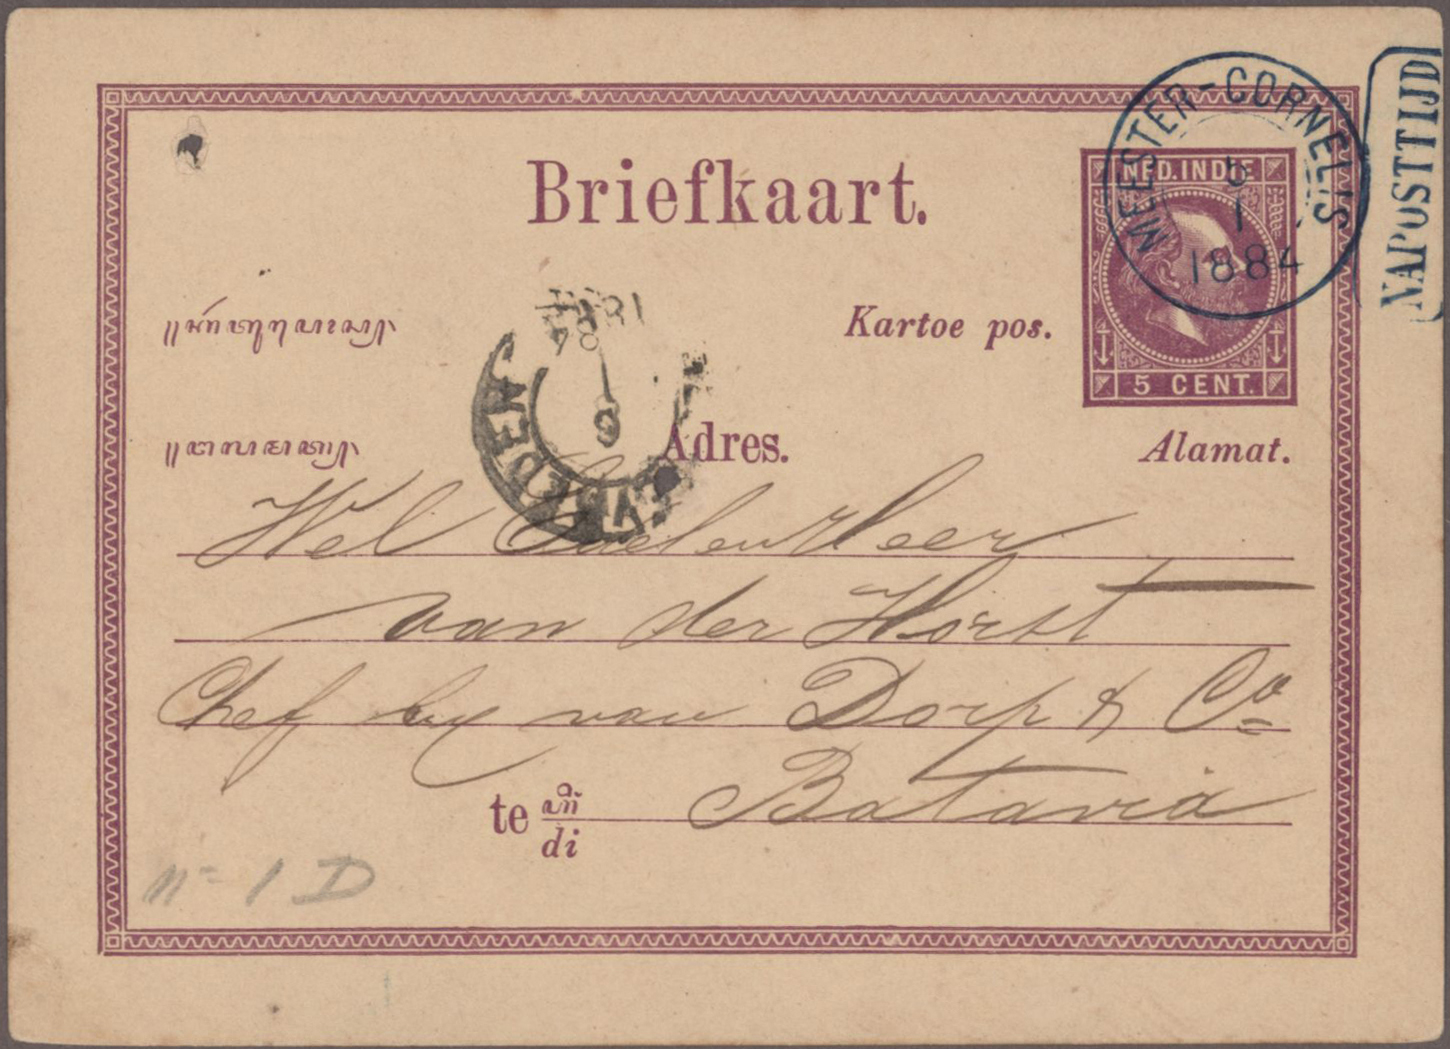 Briefkaart.
NED. INDIE
5 CENT.
MEESTER-CORNELIS
1
1884
NAPOSTTIJD
Kartoe pos.
Adres.
Alamat.
Wel Edelen Heer
van der Horst
Chef by van Dorp & Co
te
di
Batavia
6
1
1884
No 1 D